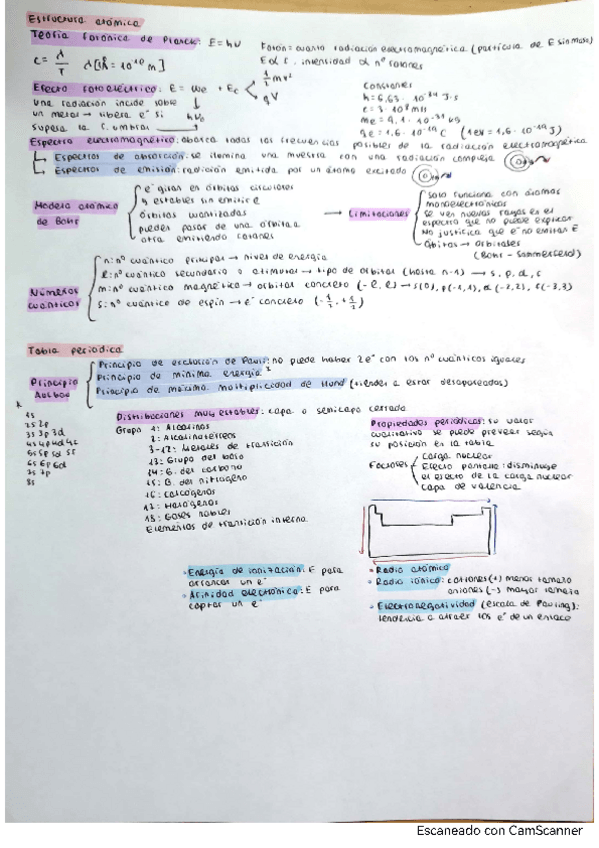 Estructura atómica
Teoría fotónica de Planck: E=hν
Fotón=cuanto radiación electromagnética (partícula de E sin masa)
c = λ/T   λ[Å=10¹⁰m]
E α f. intensidad α nº fotones
Efecto fotoeléctrico: E = We + Ec
½mv²
qV
una radiación incide sobre
un metal → libera e⁻ si   hν₀
supera la f. umbral
Constantes
h=6,63·10⁻³⁴ J·s
c=3·10⁸ m/s
me=9,1·10⁻³¹ kg
qe=1,6·10⁻¹⁹C (1eV=1,6·10⁻¹⁹J)
Espectro electromagnético: abarca todas las frecuencias posibles de la radiación electromagnética
Espectros de absorción: se ilumina una muestra con una radiación compleja
Espectros de emisión: radiación emitida por un átomo excitado
Modelo atómico
de Bohr
e⁻ giran en órbitas circulares
y estables sin emitir E
Órbitas cuantizadas
pueden pasar de una órbita a
otra emitiendo fotones
Limitaciones
Solo funciona con átomos
monoelectrónicos
Se ven nuevas rayas en el
espectro que no puede explicar
No justifica que e⁻ no emitan E
Órbitas → orbitales
(Bohr - Sommerfeld)
Números
cuánticos
n: nº cuántico principal → nivel de energía
l: nº cuántico secundario o azimutal → tipo de orbital (hasta n-1) → s, p, d, f
m: nº cuántico magnético → orbital concreto (-l, l) → s(0), p(-1,1), d(-2,2), f(-3,3)
s: nº cuántico de espín → e⁻ concreto (-½, +½)
Tabla periódica
Principio
Aufbau
Principio de exclusión de Pauli: no puede haber 2e⁻ con los nº cuánticos iguales
Principio de mínima energía
Principio de máxima multiplicidad de Hund (tienden a estar desapareados)
1s
2s 2p
3s 3p 3d
4s 4p 4d 4f
5s 5p 5d 5f
6s 6p 6d
7s 7p
8s
Distribuciones muy estables: capa o semicapa cerrada
Grupo 1: Alcalinos
2: Alcalinotérreos
3-12: Metales de transición
13: Grupo del boro
14: G. del carbono
15: G. del nitrógeno
16: Calcógenos
17: Halógenos
18: Gases nobles
Elementos de transición interna
Propiedades periódicas: su valor
cualitativo se puede prever según
su posición en la tabla
Factores
Carga nuclear
Efecto pantalla: disminuye
el efecto de la carga nuclear
Capa de valencia
Energía de ionización: E para
arrancar un e⁻
Afinidad electrónica: E para
captar un e⁻
Radio atómico
Radio iónico: cationes(+) menor tamaño
aniones (-) mayor tamaño
Electronegatividad (escala de Pauling):
tendencia a atraer los e⁻ de un enlace
Escaneado con CamScanner